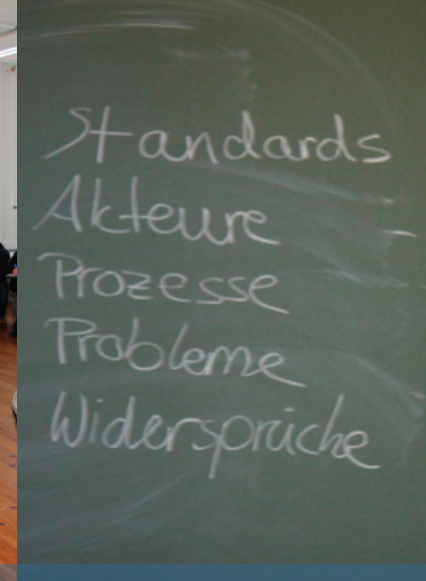 Standards
Akteure
Prozesse
Probleme
Widersprüche